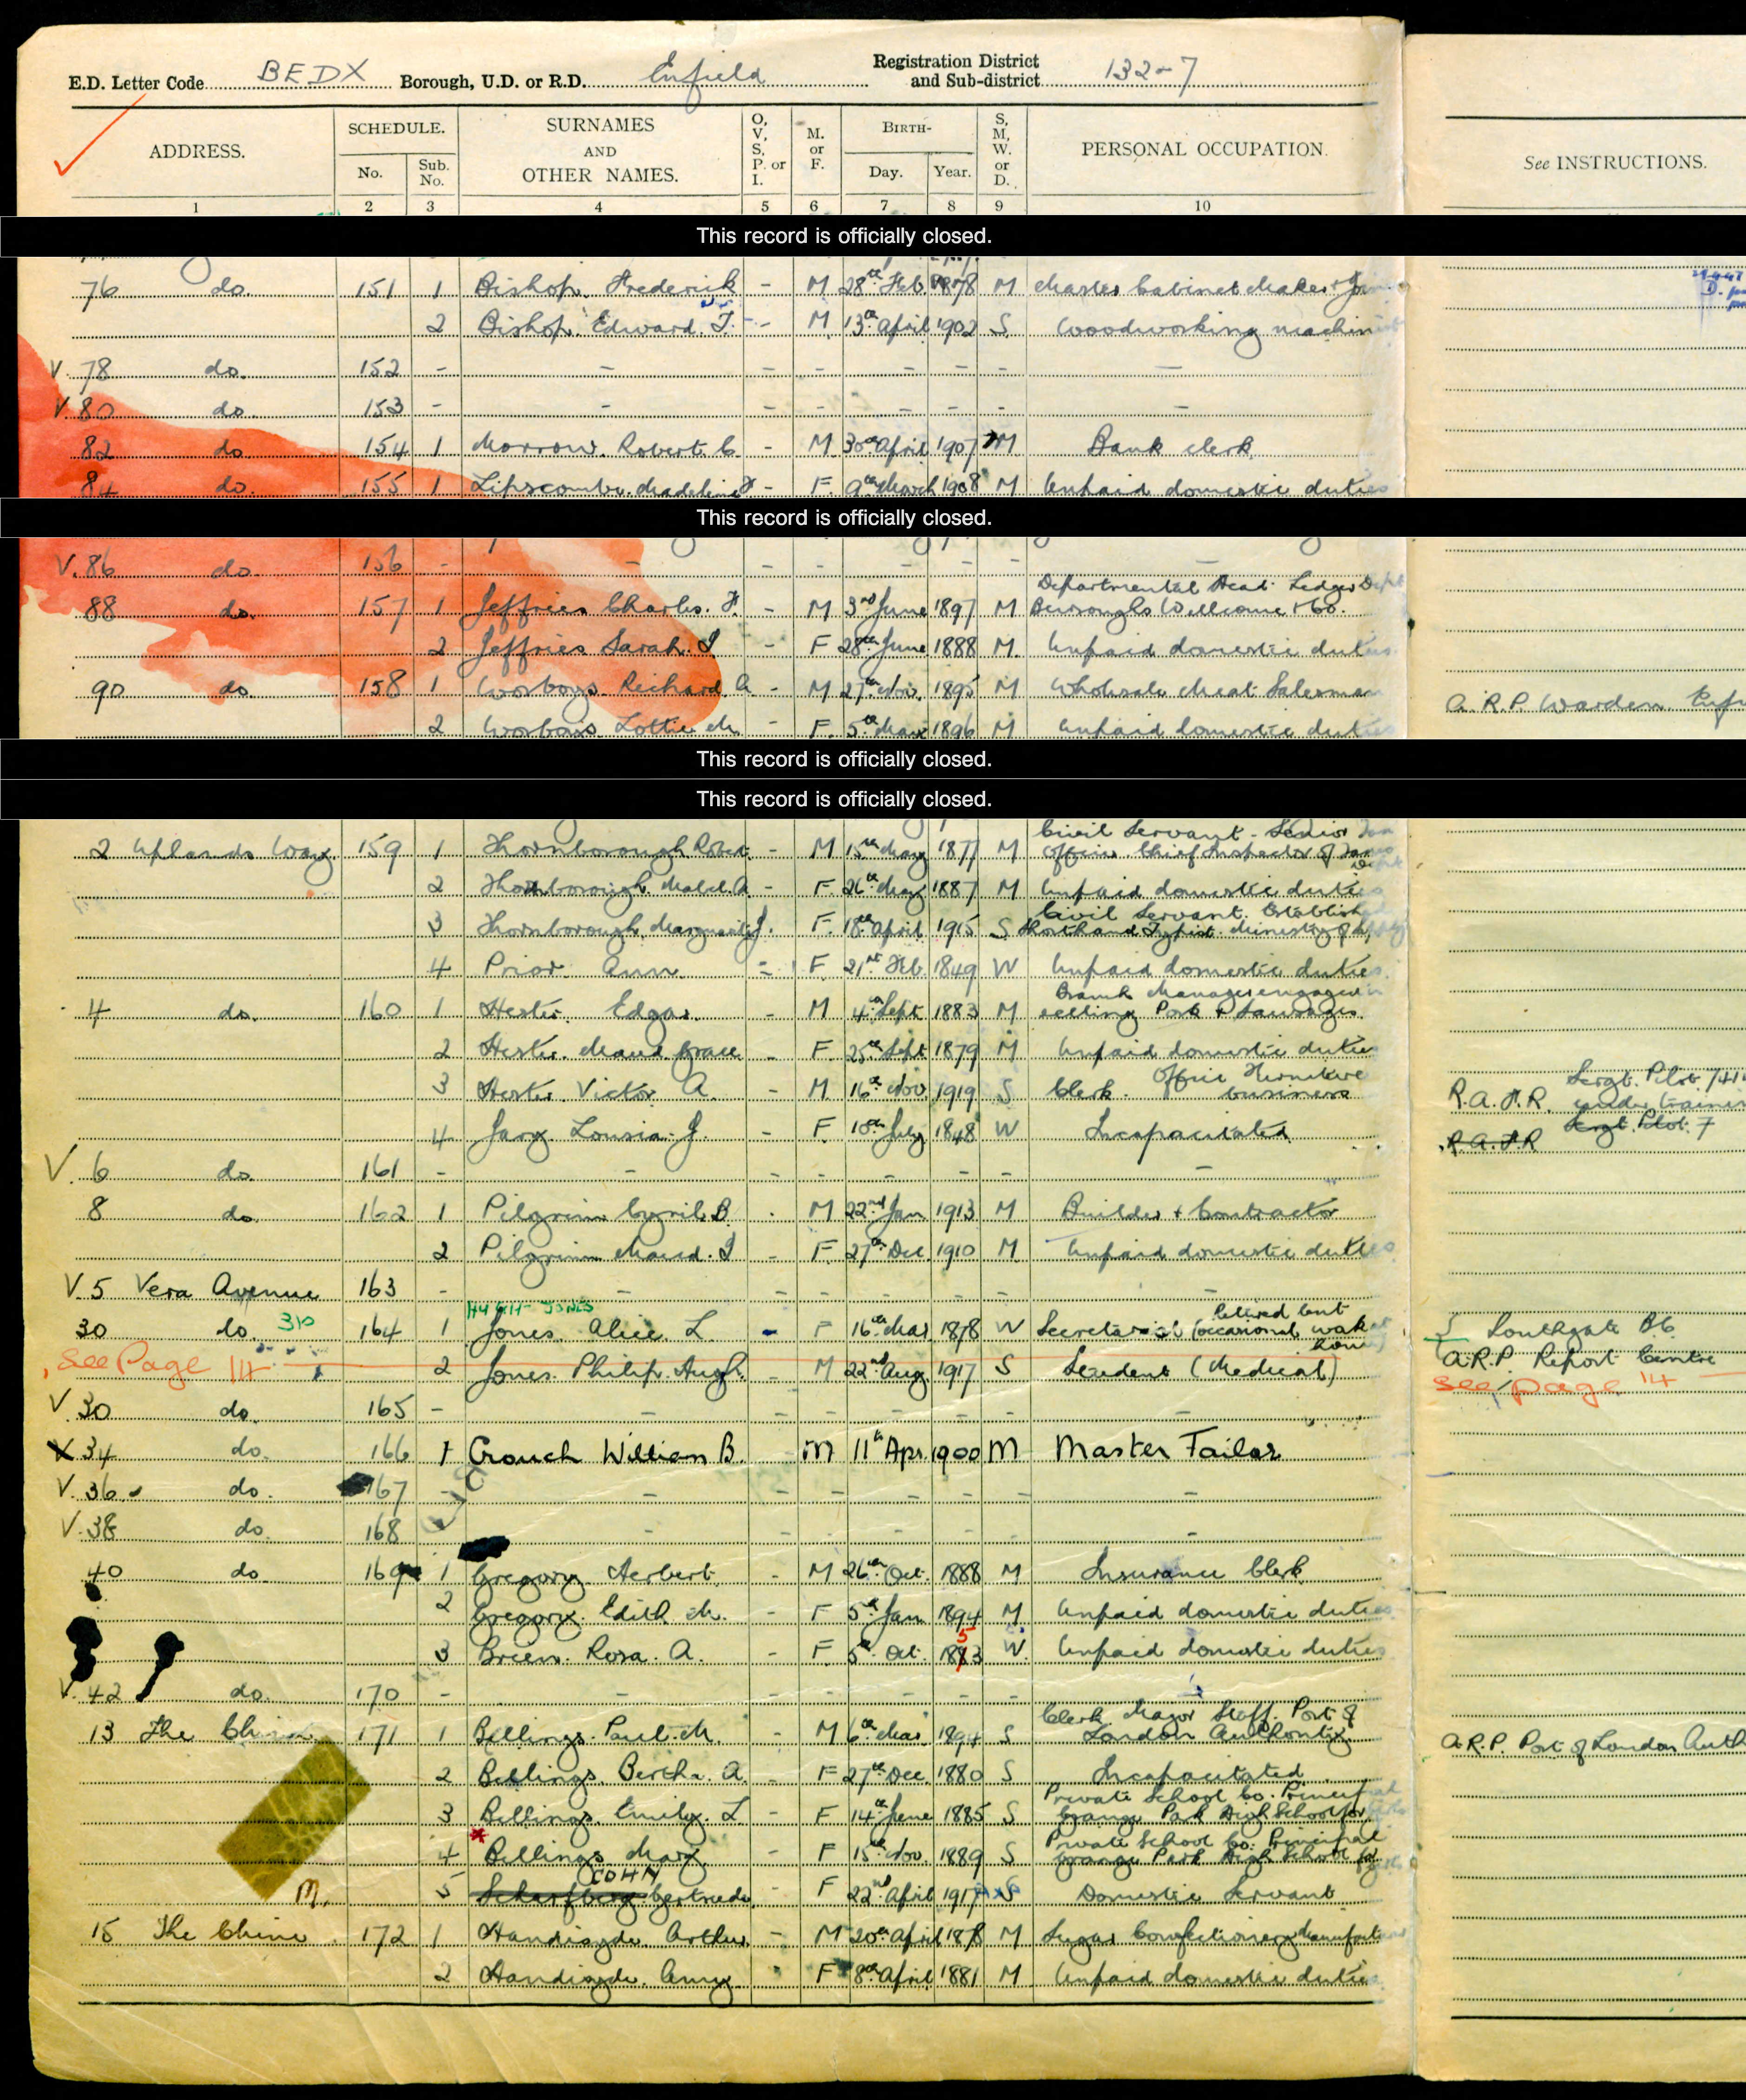 E.D. Letter Code BEDX Borough, U.D. or R.D. Enfield Registration District and Sub-district 132-7
ADDRESS. SCHEDULE. No. Sub. No. SURNAMES AND OTHER NAMES. O, V, S, P. or I. M. or F. BIRTH- Day. Year. S, M, W. or D. PERSONAL OCCUPATION. See INSTRUCTIONS.
1 2 3 4 5 6 7 8 9 10
This record is officially closed.
76 do. 151 1 Bishop. Frederick - M 28th Feb. 1878 M Master Cabinet Maker &
2 Bishop. Edward. T. - M 13th April 1902 S Woodworking machin
V. 78 do. 152 - - - - - - - -
V. 80 do. 153 - - - - - - - -
82 do 154 1 Morrow. Robert. C. - M 30th April 1907 M Bank Clerk
84 do. 155 1 Lipscombe. Madeline - F. 9th March 1908 M Unpaid domestic duties
This record is officially closed.
V. 86 do. 156 - - - - - - - -
Departmental Head. Ledger Dept
88 do. 157 1 Jeffries Charles. F. - M 3rd June 1897 M Burroughs Wellcome & Co.
2 Jeffries Sarah. J - F 28th June 1888 M. Unpaid domestic duties
90 do. 158 1 Worboys. Richard. A - M 27th Nov. 1895 M Wholesale Meat Salesman A.R.P. Warden.
2 Worboys. Lottie M. - F. 5th Mar 1896 M Unpaid domestic duties
This record is officially closed.
This record is officially closed.
Civil Servant - Senior
2 Uplands Way. 159 1 Thornborough Robert. - M 15th May 1877 M Officer. Chief Inspector of
2 Thornborough. Mabel. A - F. 26th May 1887 M Unpaid domestic duties
Civil Servant. Establish
3 Thornborough. Marguerite J. F. 18th April 1915 S Shorthand Typist. Ministry of
4 Prior Ann - F. 21st Feb. 1849 W Unpaid domestic duties.
Branch Manager engaged in
4 do. 160 1 Hester. Edgar. - M 4th Sept 1883 M selling Pork & Sausages.
2 Hester. Maud. Grace - F. 25th Sept 1879 M Unpaid domestic duties
Office Furniture Sergt. Pilot. 741
3 Hester. Victor A. - M. 16th Nov. 1919 S Clerk. business R.A.F.R. under
4 Jary. Lousia. J. - F. 18th July 1848 W Incapacitated R.A.F.R Sergt. Pilot. 7
V. 6 do. 161 - - - - - - - -
8 do. 162 1 Pilgrim Cyril. B. . M 22nd Jan 1913 M Builder & Contractor
2 Pilgrim Maud. I - F. 27th Dec 1910 M. Unpaid domestic duties
V. 5 Vera Avenue 163 - - - - - - -
HUGH-JONES Retired but
30 do. 164 1 Jones. Alice L - F 16th Mar 1878 W Secretarial (occasional work at home) Southgate BC
See Page 14 2 Jones. Philip. Hugh. M 22nd Aug. 1917 S Student (Medical) A.R.P. Report Centre
see page 14
V. 30 do. 165 - - - - - - - -
X 34 do. 166 1 Crouch William B. - M 11th Apr. 1900 M Master Tailor
V. 36. do. 167 - - - - - - - -
V. 38 do. 168 - - - - - - -
40 do. 169 1 Gregory. Herbert. - M 26th Oct. 1888 M Insurance Clerk
2 Gregory. Edith M. - F 5th Jan 1894 M. Unpaid domestic duties
5
3 Brien. Rosa. A. - F. 5th Oct. 1883 W. Unpaid domestic duties
V. 42 do. 170 - - - - - - -
Clerk Major Staff. Port of
13 The Chine 171 1 Billings. Paul. M. - M 6th Mar 1894 S London Authority. A.R.P. Port of London Auth
2 Billings. Bertha. A. - F 27th Dec. 1880 S Incapacitated.
Private School Co. Principal
3 Billings. Emily. L - F 14th June 1885 S Grange Park High School for
Private School Co. Principal
4 Billings Mary - F 15th Nov. 1889 S Grange Park High School for
COHN
M. 5 Scharfberg Gertrude. - F 22nd April 1917 S Domestic Servant
15 The Chine. 172 1 Handisyde Arthur. - M 20th April 1878 M Sugar Confectionery
2 Handisyde. Amy - F 8th April 1881 M Unpaid domestic duties